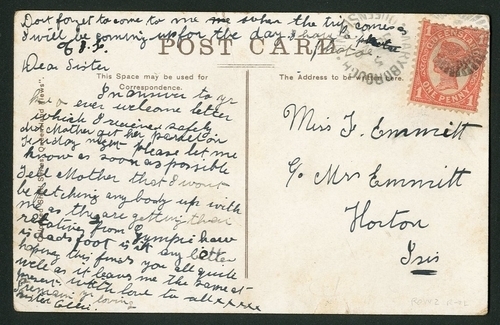 Dont forget to come to me when the trip comes
I will be coming up for the day I have
POST CARD
Dear Sister
This Space may be used for
Correspondence.
The Address to be written here.
In answer to yr
ever welcome letter
which I received safely
did Mother get her parcel on
Tuesday night Please let me
know as soon as possible
Tell Mother that I wont
be fetching any body up with
me as they are getting their
relatives from Gympie how
is dads foot is it any better
hoping this finds you all quite
well as it leaves me the same at
present with love to all xxxx
loving
sister
Miss F. Emmett
C/o Mrs Emmitt
Horton
Isis
QUEENSLAND
ONE PENNY
1
1
MARYBOROUGH
QUEENSLAND